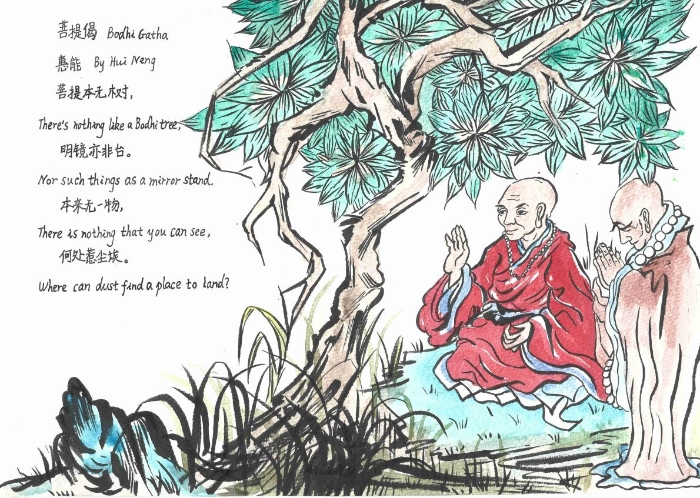 菩提偈 Bodhi Gatha
惠能 By Hui Neng
菩提本无树,
There's nothing like a Bodhi tree,
明镜亦非台。
Nor such things as a mirror stand.
本来无一物,
There is nothing that you can see,
何处惹尘埃。
Where can dust find a place to land?